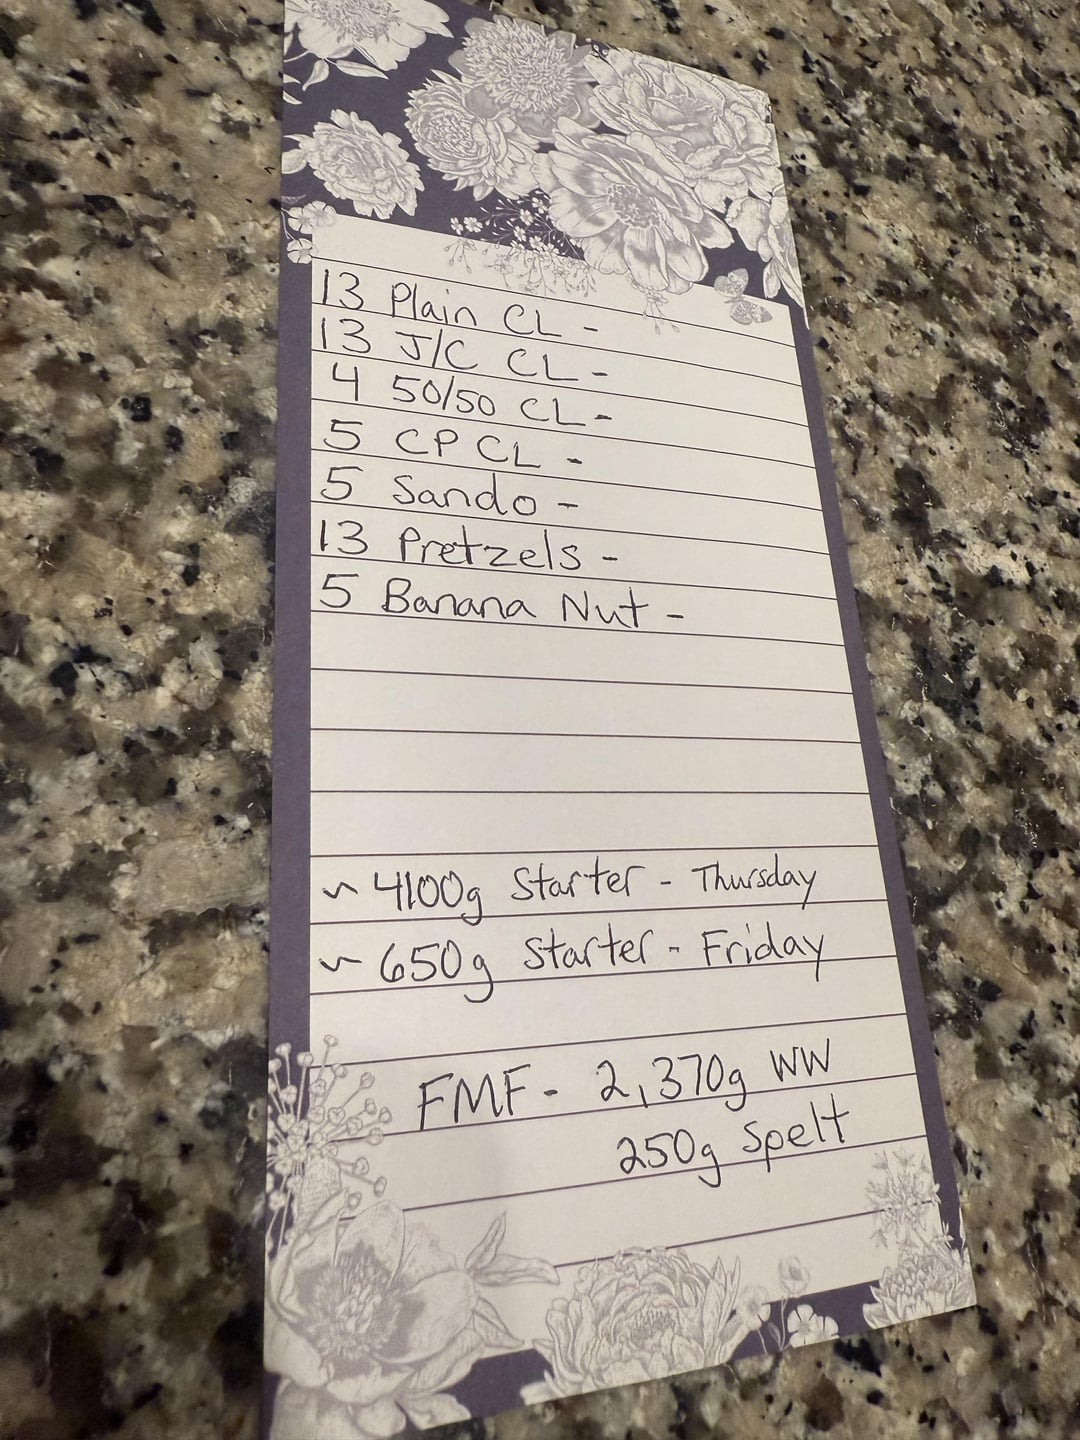 13 Plain CL -
13 J/C CL -
4 50/50 CL -
5 CP CL -
5 Sando -
13 Pretzels -
5 Banana Nut -
~ 4100g Starter - Thursday
~ 650g Starter - Friday
FMF - 2,370g WW
250g Spelt